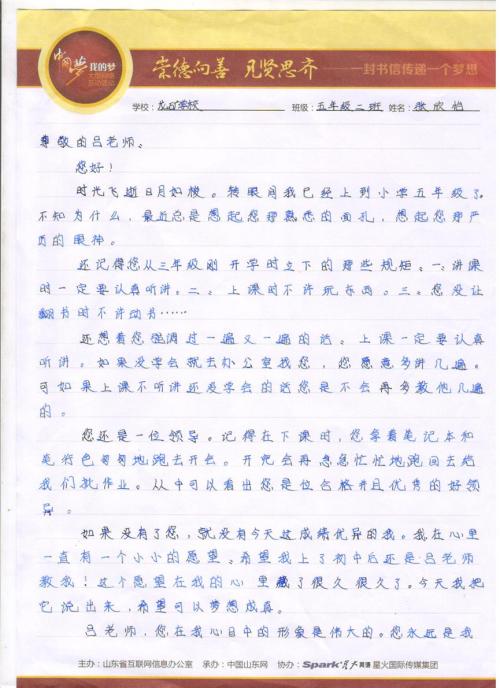 中国梦 我的梦
大型网络
互动活动
崇德向善 见贤思齐
一封书信传递一个梦想
学校：龙口学校 班级：五年级二班 姓名：张欣怡
尊敬的吕老师。
您好！
时光飞逝日月如梭。转眼间我已经上到小学五年级了。
不知为什么，最近总是想起您那熟悉的面孔，想起您那严
厉的眼神。
还记得您从三年级刚开学时立下的那些规矩。一、讲课
时一定要认真听讲。二、上课时不许玩东西。三、您没让
翻书时不许动书……
还想着您强调过一遍又一遍的话。上课一定要认真
听讲。如果没学会就去办公室找您，您愿意多讲几遍。
可如果上课不听讲还没学会的话您是不会再多教他几遍
的。
您还是一位领导。记得在下课时，您拿着笔记本和
笔行色匆匆地跑去开会。开完会再急急忙忙地跑回去给
我们批作业。从中可以看出您是位合格并且优秀的好领
导。
如果没有了您，就没有今天这成绩优异的我。我在心里
一直有一个小小的愿望、希望我上了初中后还是吕老师
教我！这个愿望在我的心里藏了很久很久了。今天我把
它说出来，希望可以梦想成真。
吕老师，您在我心目中的形象是伟大的。您永远是我
主办：山东省互联网信息办公室 承办：中国山东网 协办：Spark星火英语 星火国际传媒集团